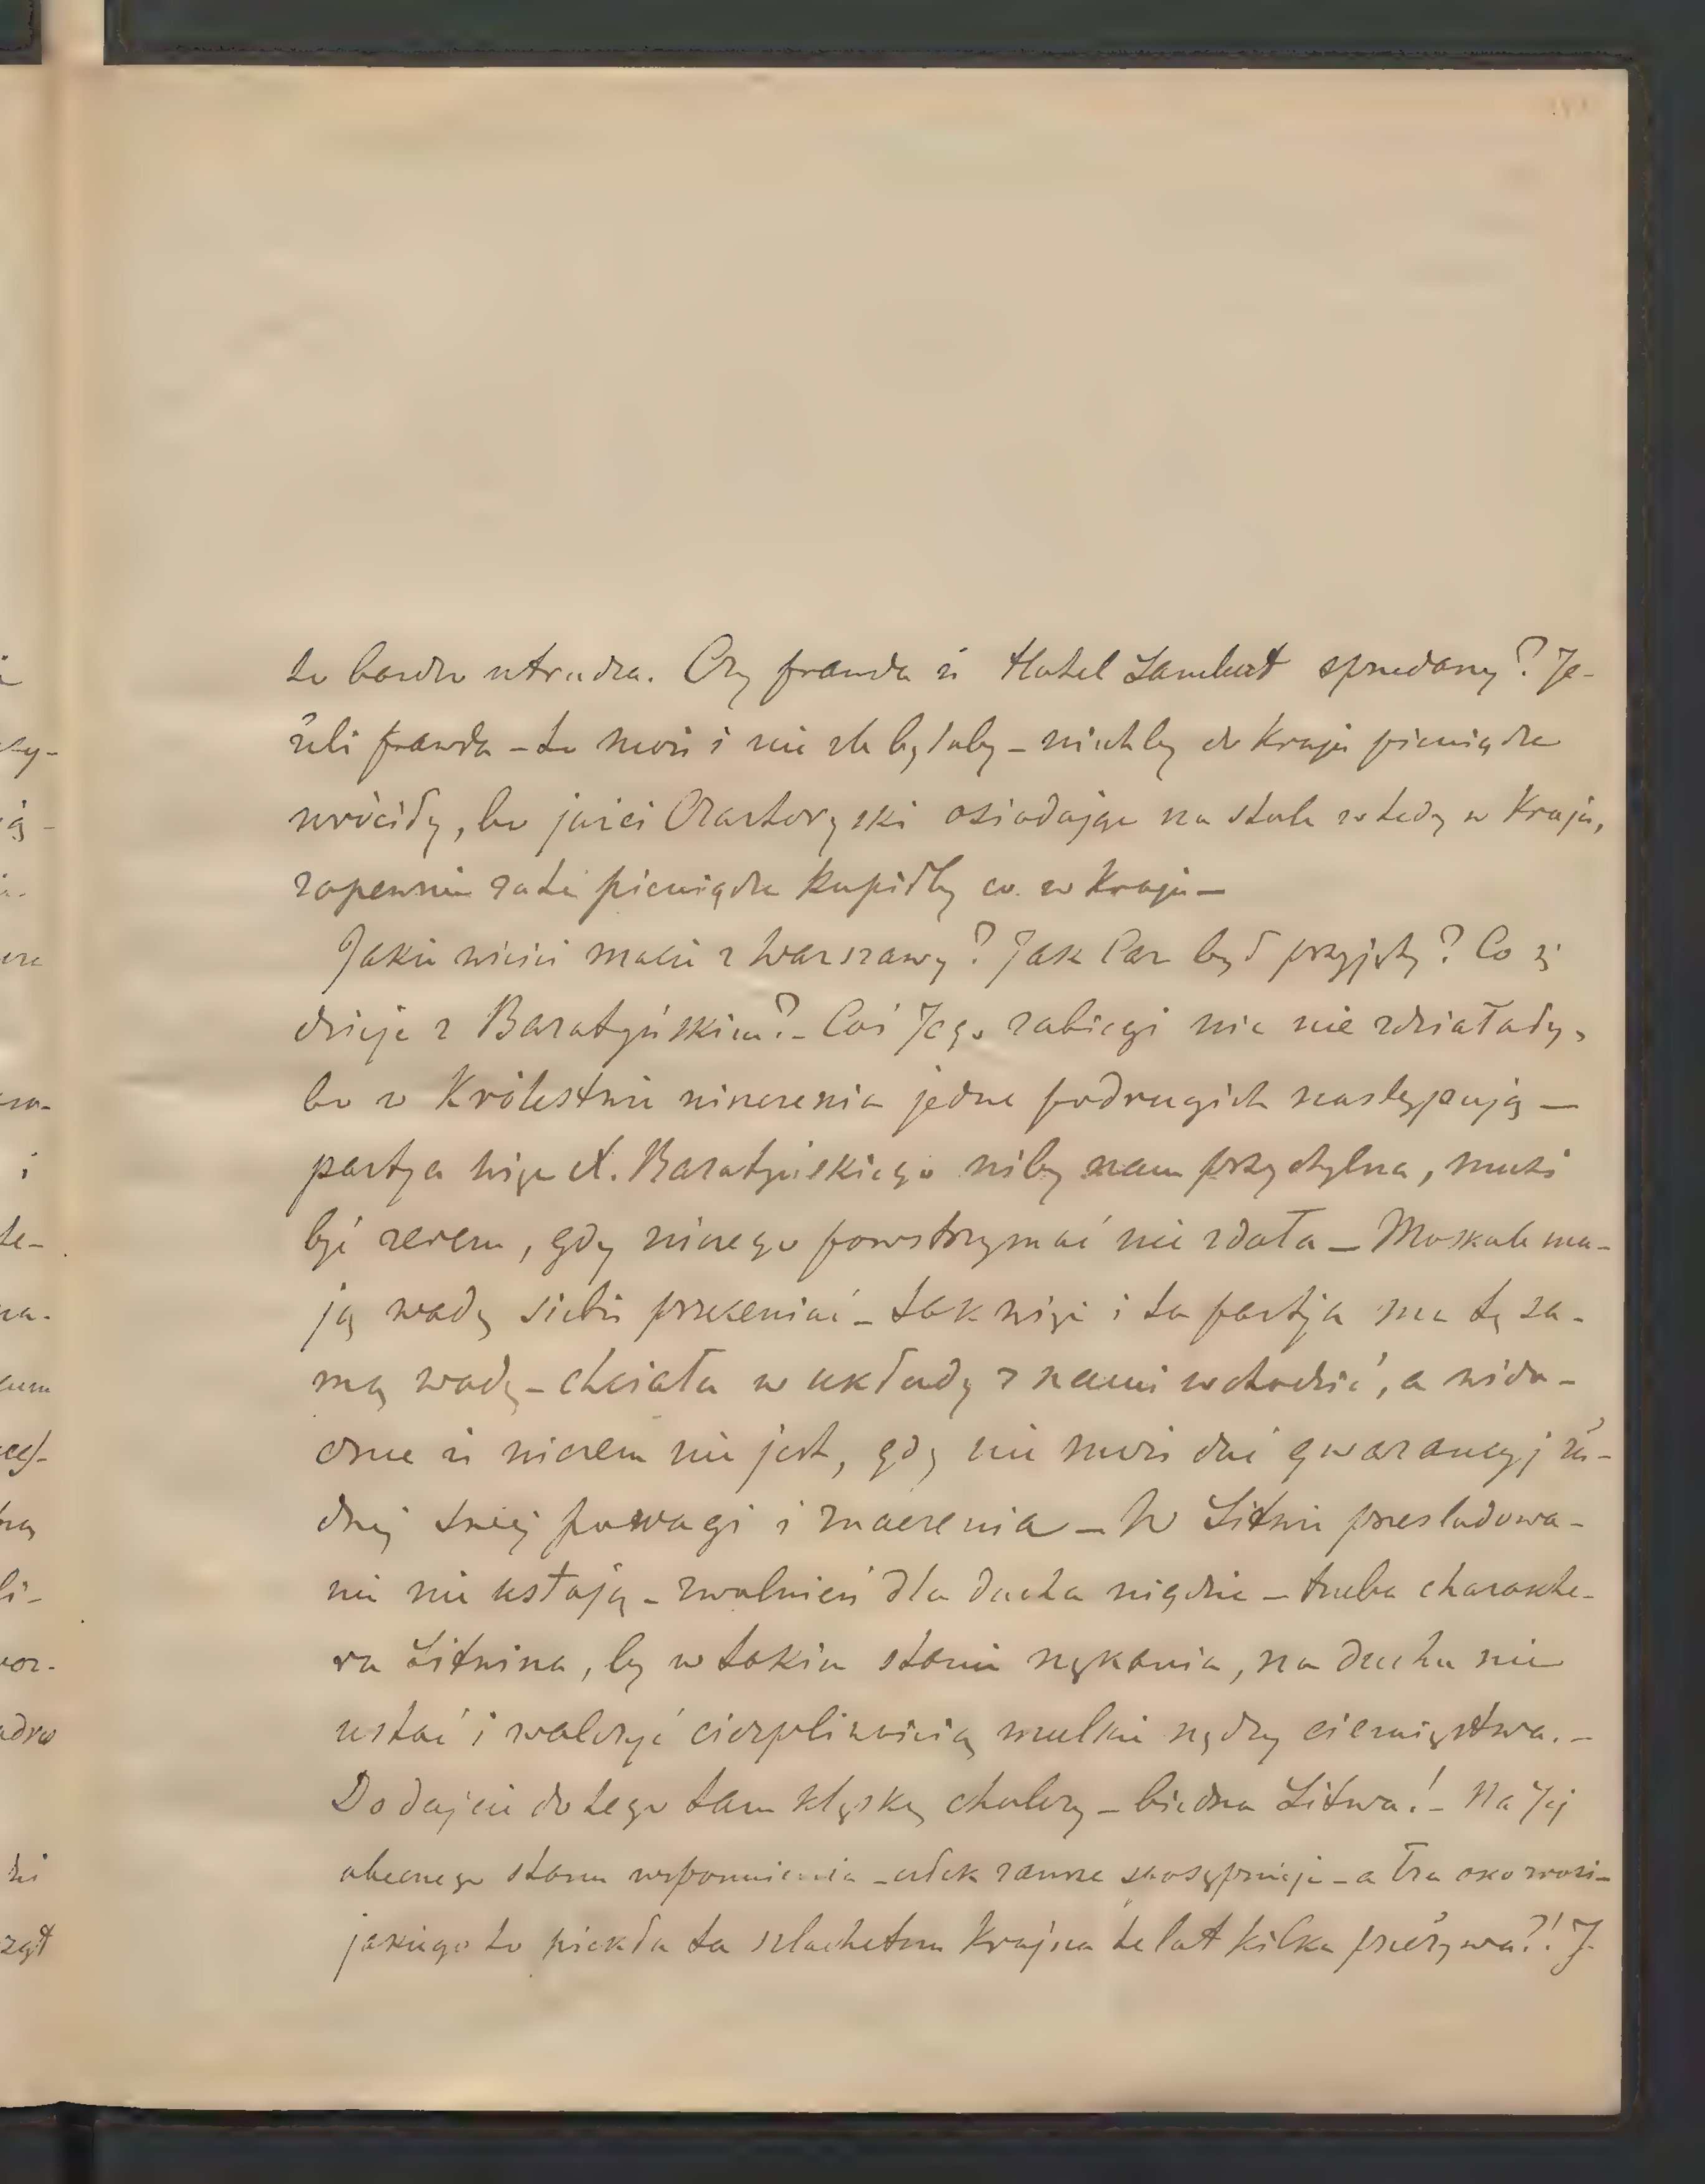 to bardzo utrudza. Czy prawda iż Hotel Lambert sprzedany? Je-
żeli prawda – to może i nie źle byłoby – niechby do Kraju pieniądze
wróciły, bo jużci Czartoryski osiadając na stałe wtedy w Kraju,
zapewnie za te pieniądze kupiłby co w Kraju –
Jakie wieści macie z Warszawy? Jak Car był przyjęty? Co się
dzieje z Baratyńskim? – Coś Jego zabiegi nic nie zdziałały,
bo w Królestwie niszczenia jedne po drugich następują —
partya więc X. Baratyńskiego niby nam przychylna, musi
być zerem, gdy niczego powstrzymać nie zdoła – Moskale ma-
ją wadę siebie przeceniać – tak więc i ta partja ma tę sa-
mą wadę – chciała w układy z nami wchodzić, a wido-
czne iż niczem nie jest, gdy nie może dać gwarancyj ża-
dnej swej powagi i znaczenia – W Litwie prześladowa-
nie nie ustają – zwolnień dla ducha nigdzie – trzeba charakte-
ru Litwina, by w takim stanie nękania, na duchu nie
ustać i walczyć cierpliwością wszelkie nędzy ciemięstwa. –
Dodajcie do tego tam klęskę cholery – biedna Litwa! – Na Jej
obecnego stanu wspomnienia – człek zawsze – a łza oko rosi –
jakiegoto piekła ta szlachetna Kraina te lat kilka przeżywa?! J-